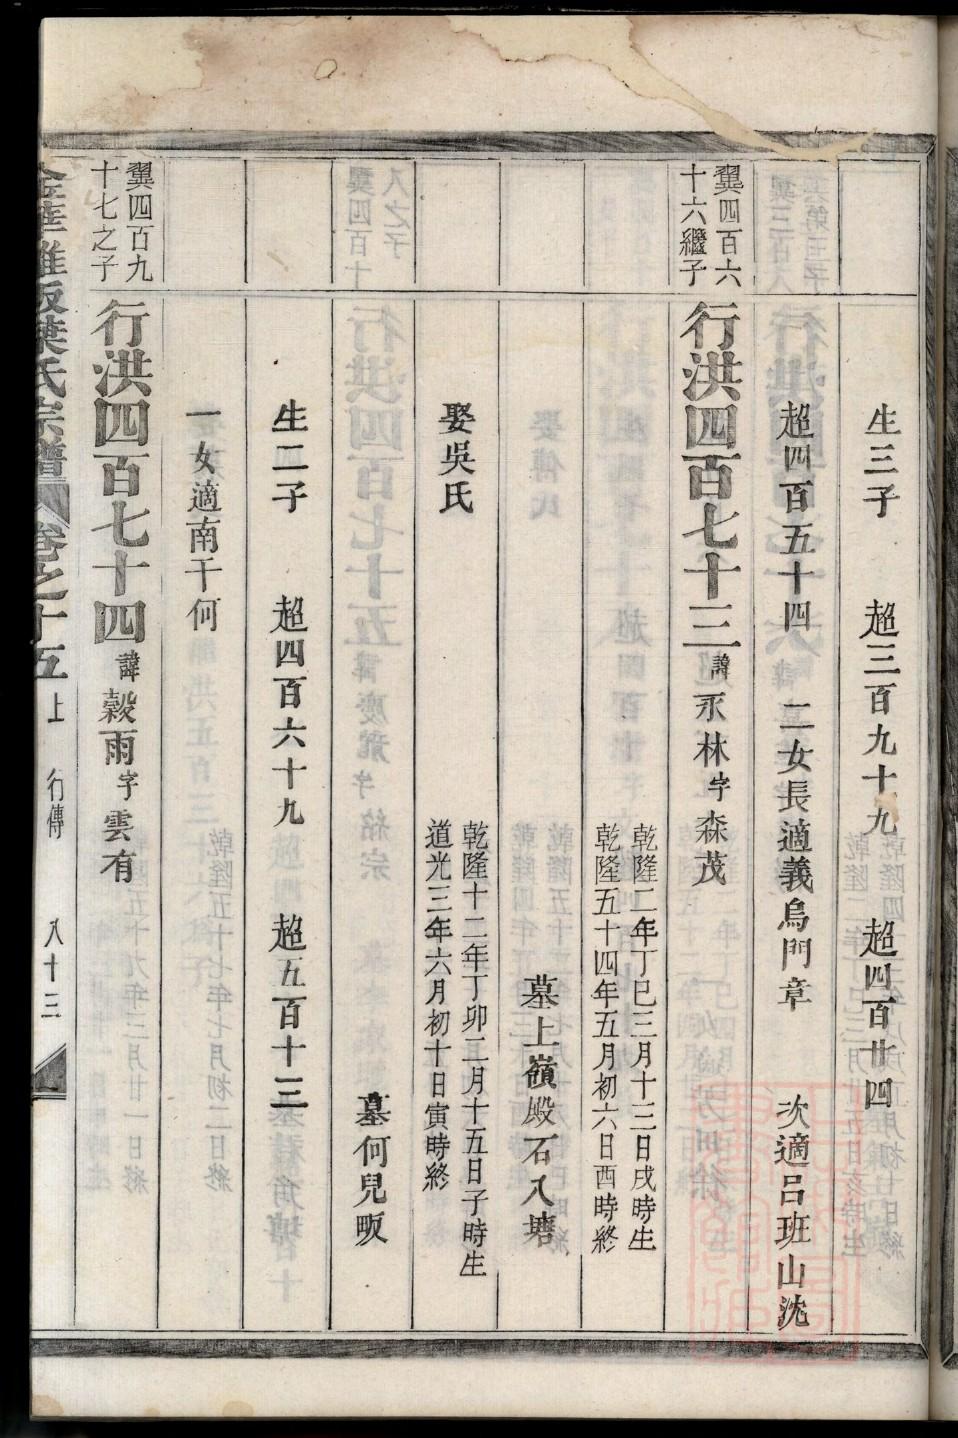 生三子　超三百九十九　超四百廿四
超四百五十四　二女長適義烏門章　次適呂班山沈
翼四百六
十六繼子
行洪四百七十三諱永林字森茂
乾隆二年丁巳三月十三日戌時生
乾隆五十四年五月初六日酉時終
墓上嶺殿石入塘
娶吳氏
乾隆十二年丁卯二月十五日子時生
道光三年六月初十日寅時終
墓何兒畈
生二子　超四百六十九　超五百十三
一女適南干何
翼四百九
十七之子
行洪四百七十四諱穀雨字雲有
葉氏宗譜　卷之十五上　行傳　八十三